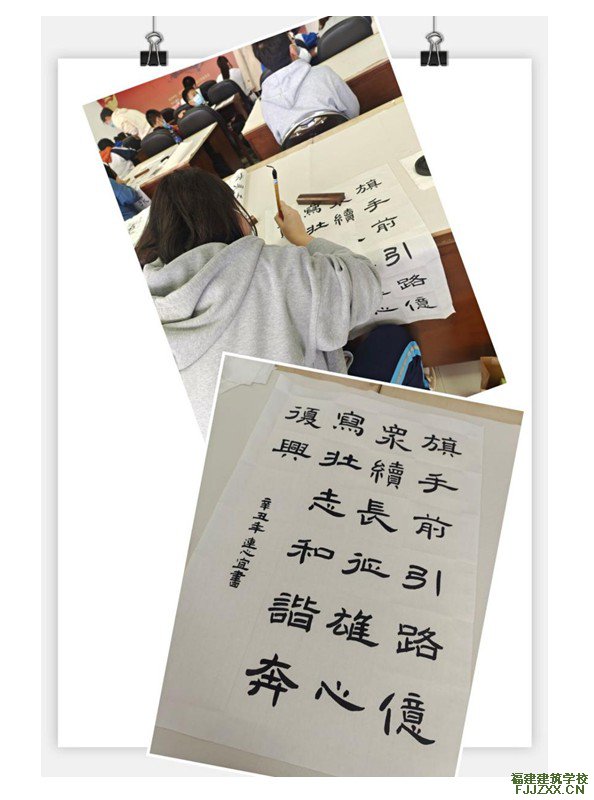 旗手前引路億
續心
寫壯
旗手前引路億
衆續長征雄心
寫壯志和諧奔
復興
辛丑年 連心宜書
福建建筑学校
FJJZXX.CN